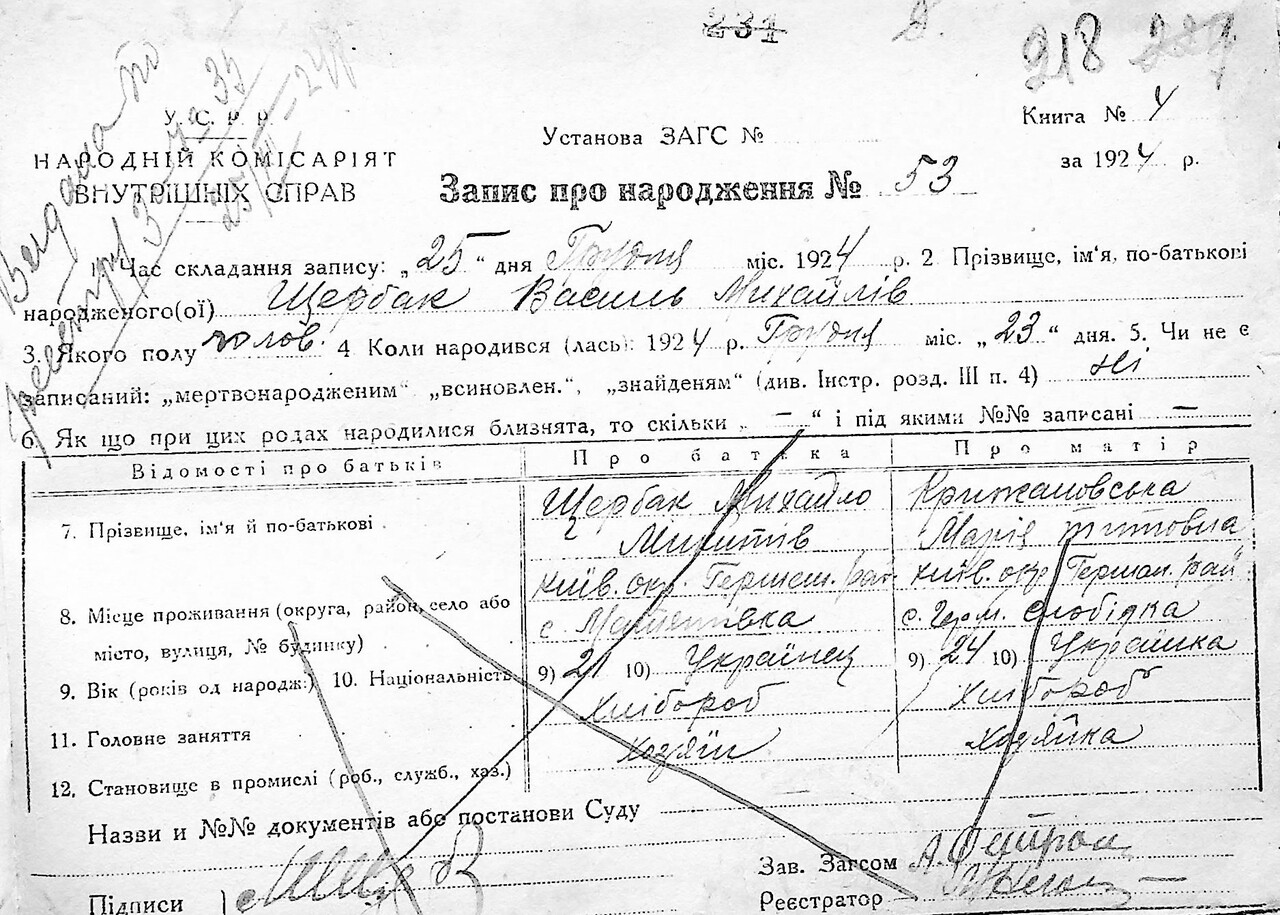 231
218
У. С. Р. Р.
НАРОДНІЙ КОМІСАРІЯТ
ВНУТРІШНІХ СПРАВ
Установа ЗАГС №
Книга № 4
за 1924 р.
Запис про народження № 53
1. Час складання запису: „25" дня Грудня міс. 1924 р. 2 Прізвище, ім'я, по-батькові
народженого(ої) Щербак Василь Михайлів
3. Якого полу чолов. 4 Коли народився (лась): 1924 р. Грудня міс. „23" дня. 5. Чи не є
записаний: „мертвонародженим" „всиновлен.", „знайденям" (див. Інстр. розд. III п. 4) Ні
6. Як що при цих родах народилися близнята, то скільки „ — " і під якими №№ записані —
Відомості про батьків Про батька Про матір
7. Прізвище, ім'я й по-батькові Щербак Михайло Крижановська
Марія Титовна
8. Місце проживання (округа, район, село або київ. окр. Герман. рай. київ. окр. Герман. рай.
місто, вулиця, № будинку) с. с. Герм. Слобідка
9. Вік (років од народж.) 10. Національність 9) 21 10) Українец 9) 24 10) Українка
11. Головне заняття Хлібороб Хлібороб
12. Становище в промислі (роб., служб., хаз.) Хозяїн Хозяйка
Назви и №№ документів або постанови Суду
Підписи
Зав. Загсом
Реєстратор